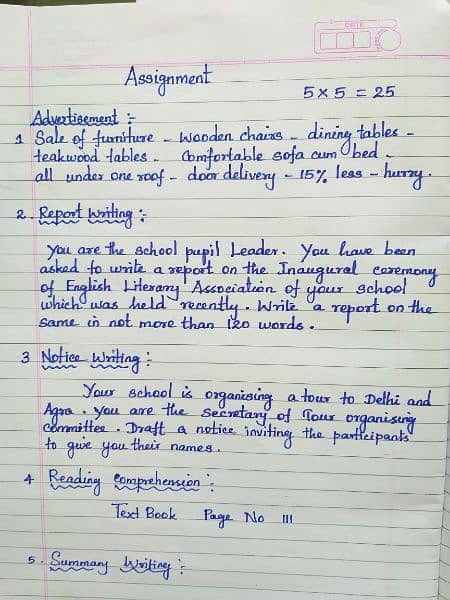 DATE
Assignment
5 x 5 = 25
Advertisement :-
1 Sale of furniture - wooden chairs - dining tables -
teakwood tables - Comfortable sofa cum bed -
all under one roof - door delivery - 15% less - hurry.
2. Report Writing :-
You are the school pupil Leader. You have been
asked to write a report on the Inaugural ceremony
of English Literary Association of your school
which was held recently. Write a report on the
same in not more than 120 words.
3 Notice Writing :-
Your school is organising a tour to Delhi and
Agra. You are the secretary of Tour organising
committee. Draft a notice inviting the participants
to give you their names.
4 Reading Comprehension :-
Text Book Page No 111
5. Summary Writing :-